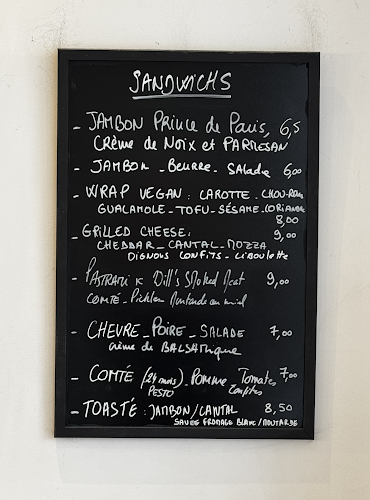 SANDWICHS
- JAMBON PRINCE de PARIS, 6,5
CRÈME de NOIX et PARMESAN
- JAMBON - BEURRE - SALADE 6,00
- WRAP VEGAN : CAROTTE - CHOU-ROUGE
GUACAMOLE - TOFU - SÉSAME - CORIANDRE
8,00
- GRILLED CHEESE : 9,00
CHEDDAR - CANTAL - MOZZA
OIGNONS CONFITS - CIBOULETTE
- PASTRAMI Will's Smoked Meat 9,00
COMTÉ - Pickles Moutarde au miel
- CHEVRE - POIRE - SALADE 7,00
crème de BALSAMIQUE
- COMTÉ (24 mois) - Pomme Tomates 7,00
PESTO Confites
- TOASTÉ : JAMBON / CANTAL 8,50
SAUCE FROMAGE BLANC / MOUTARDE